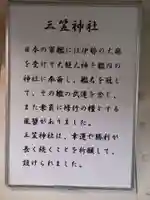 三笠神社
日本の軍艦には伊勢の大廟
を受けて大麻と神を艦内の
神社に奉斎し、艦名を冠と
して、その艦の武運を念じ、
また乗員に修行の糧とする
風習がありました。
三笠神社は、幸運や勝利が
長く続くことを祈願して、
設けられました。